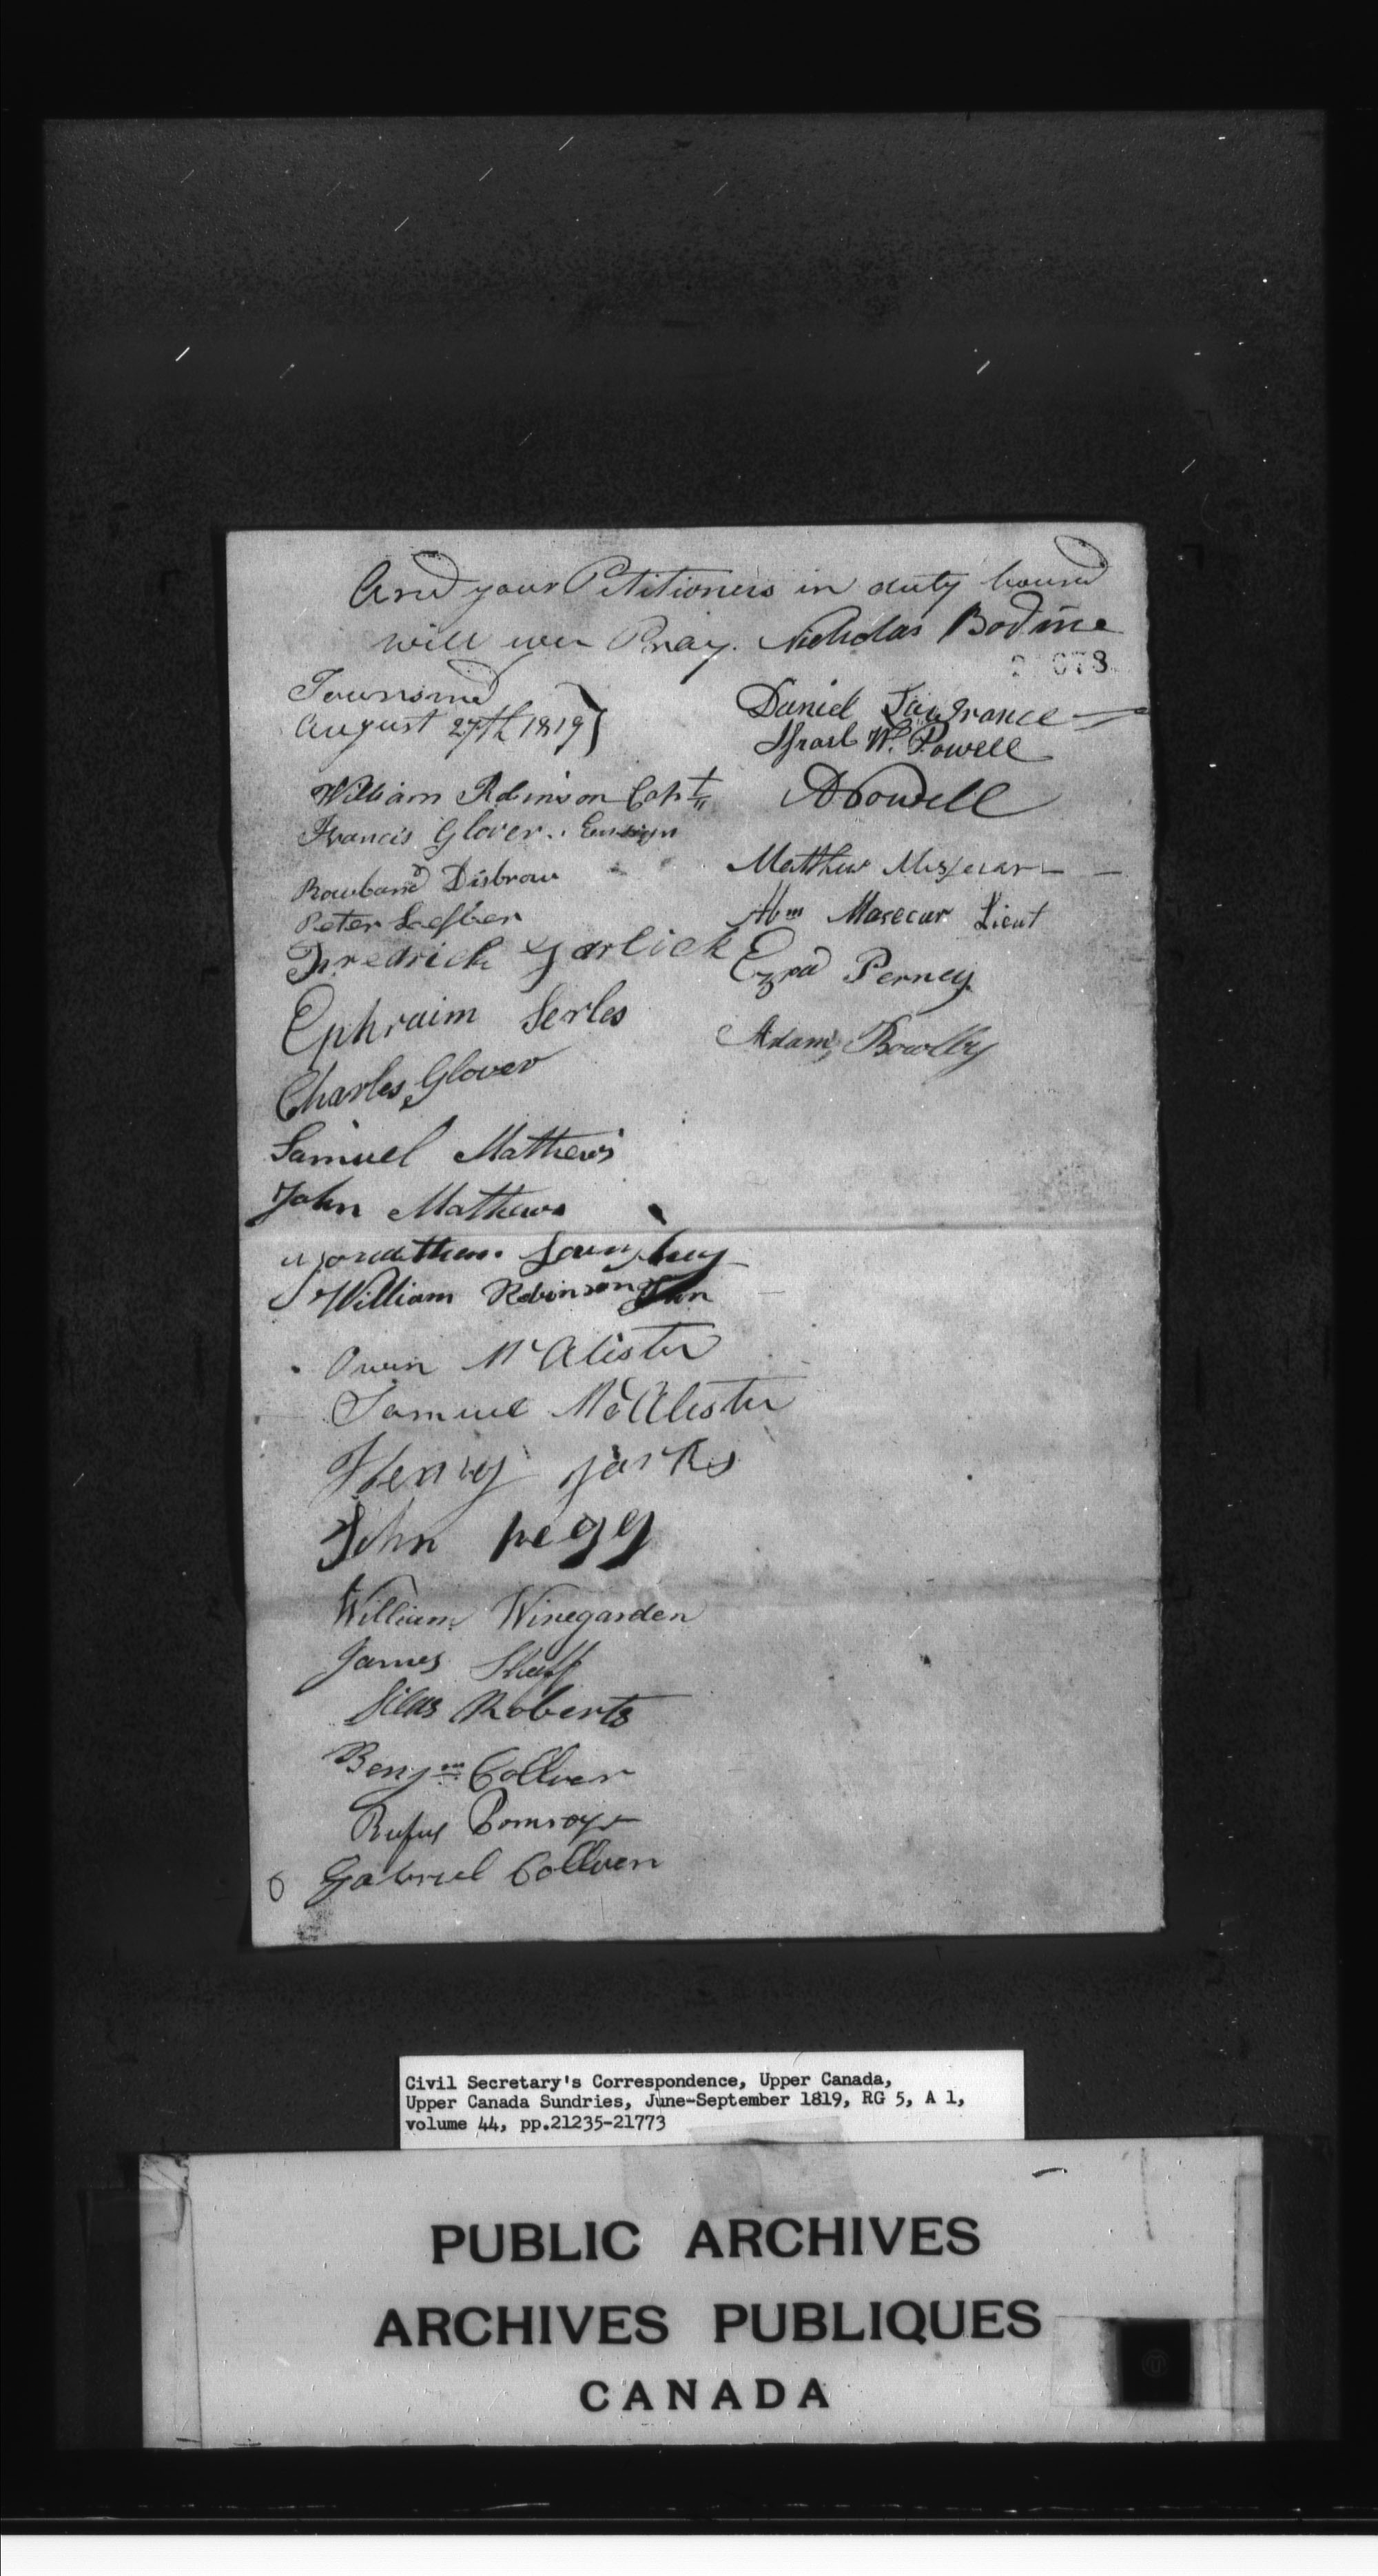 And your Petitioners in duty bound
will ever Pray. Nicholas Bodine
078
Townsend
August 27th 1819
Daniel Lawrance
Israel W. Powell
William Robinson Capt
APowell
Francis Glover.. Ensign
Rowland Disbrow
Matthew
Peter
Abm Masecar Lieut
Fredrick Garlick
Ezra Perney
Ephraim Serles
Adam Bowlby
Charles Glover
Samuel Mathews
John Mathews
Jonathan
William Robinson Jun
Owen McAlister
Samuel McAlister
Henry
John pegg
William Winegarden
James
Silas Roberts
Benjm Collver
Rufus Pomroy
Gabriel Collver
Civil Secretary's Correspondence, Upper Canada,
Upper Canada Sundries, June-September 1819, RG 5, A 1,
volume 44, pp.21235-21773
PUBLIC ARCHIVES
ARCHIVES PUBLIQUES
CANADA